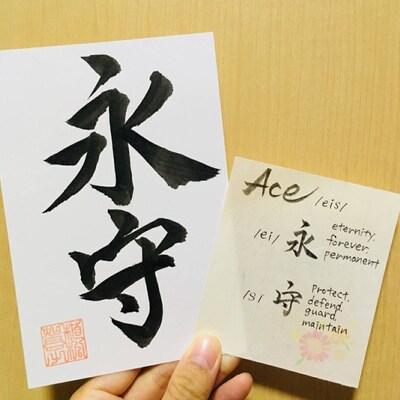 永
守
Ace /eis/
/ei/ 永 eternity,
forever
permanent
/s/ 守 Protect,
defend,
guard,
maintain